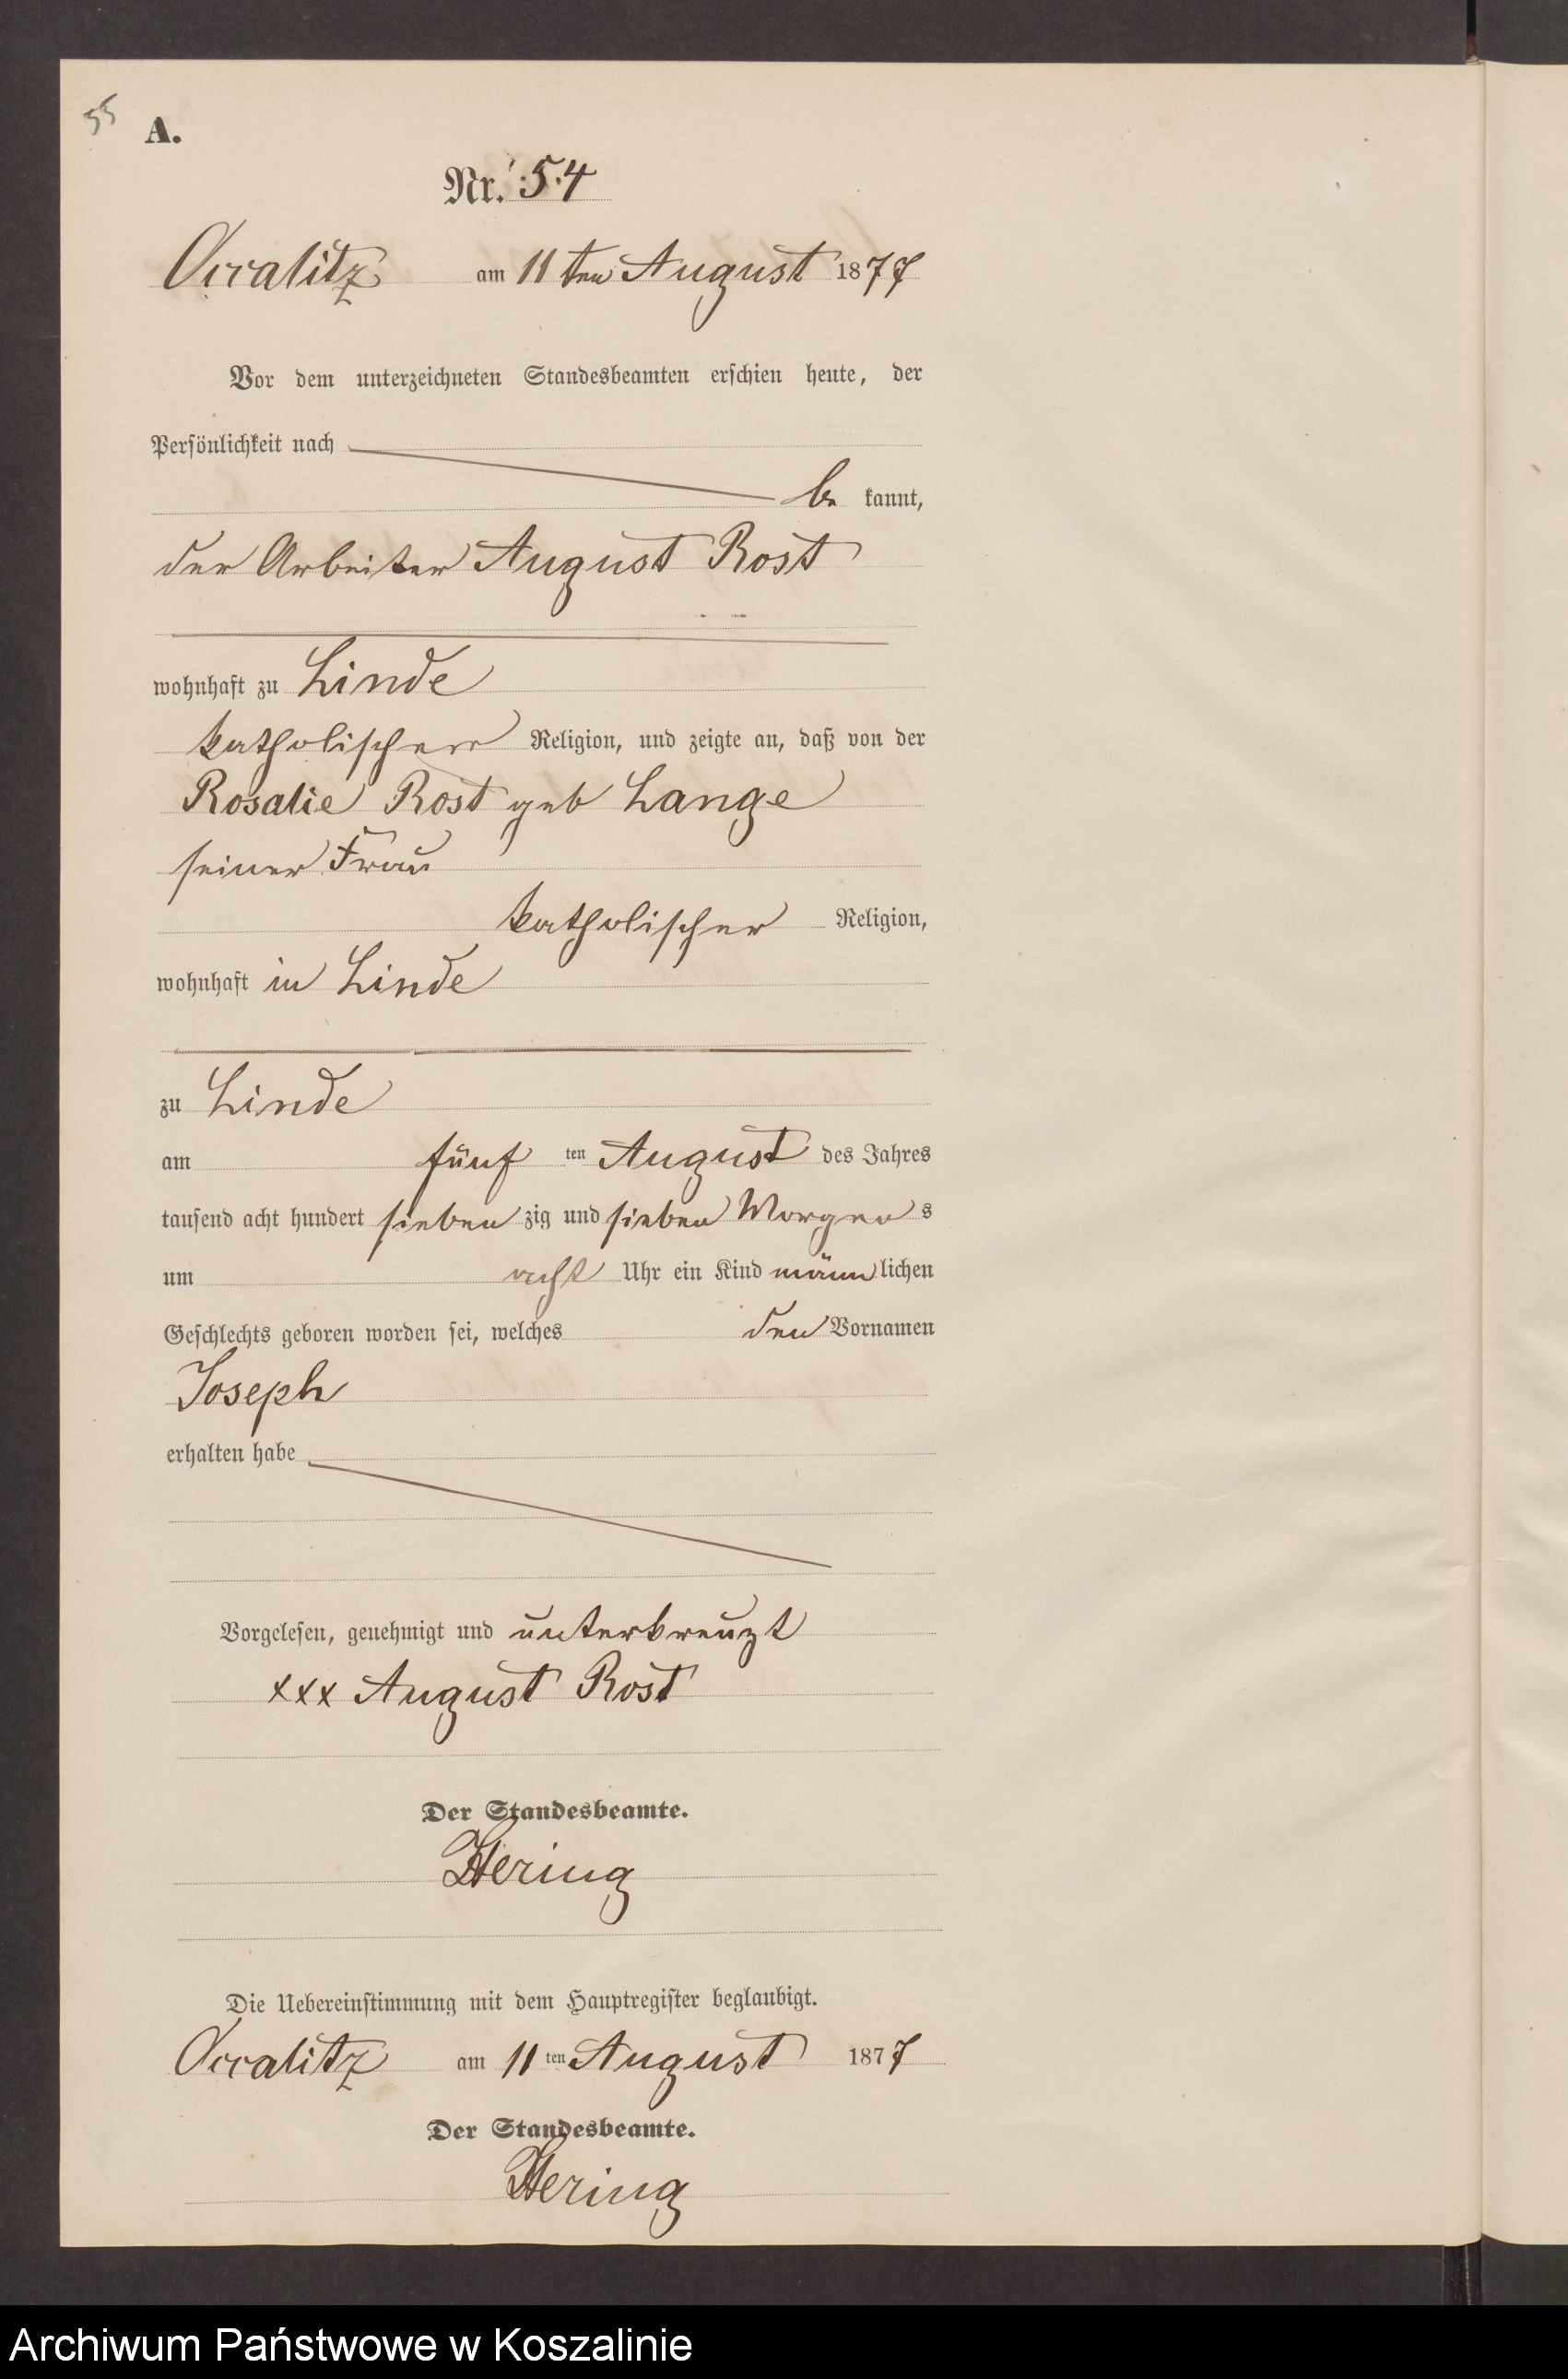 55
A.
Nr. 54
Occalitz am 11ten August 1877
Vor dem unterzeichneten Standesbeamten erschien heute, der
Persönlichkeit nach
be kannt,
der Arbeiter August Rost
wohnhaft zu Linde
katholischer Religion, und zeigte an, daß von der
Rosalie Rost geb Lange
seiner Frau
katholischer Religion,
wohnhaft in Linde
zu Linde
am fünf ten August des Jahres
tausend acht hundert sieben zig und sieben Morgen s
um acht Uhr ein Kind männ lichen
Geschlechts geboren worden sei, welches den Vornamen
Joseph
erhalten habe
Vorgelesen, genehmigt und unterkreuzt
xxx August Rost
Der Standesbeamte.
Hering
Die Uebereinstimmung mit dem Hauptregister beglaubigt.
Occalitz am 11 ten August 1877
Der Standesbeamte.
Hering
Archiwum Państwowe w Koszalinie